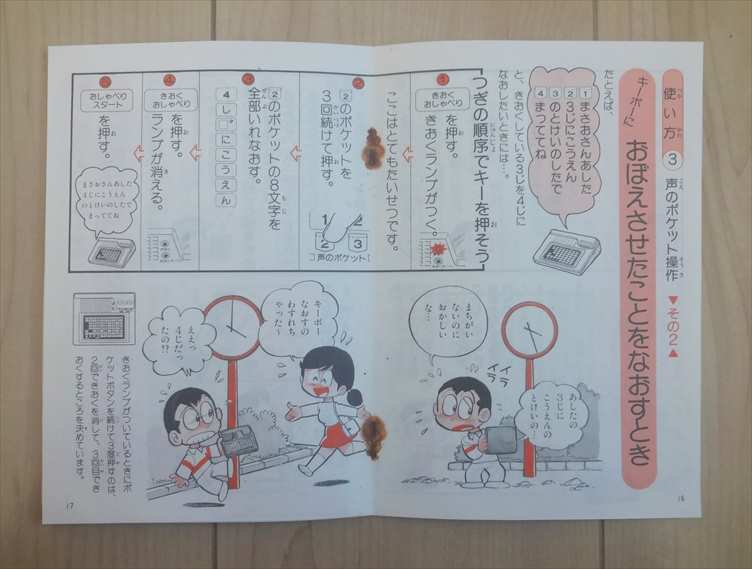 使い方 3 声のポケット操作 ▼その2▲
キーボーに おぼえさせたことをなおすとき
たとえば、
1 まさおさんあした
2 3じにこうえん
3 のとけいのしたで
4 まっててね
と、きおくしている3じを4じに
なおしたいときには…。
つぎの順序でキーを押そう
1
きおく
おしゃべり
を押す。
きおくランプがつく。
ここはとてもたいせつです。
2
2のポケットを
3回続けて押す。
1 2
2 3
声のポケット
3
2のポケットの8文字を
全部いれなおす。
4じ゛にこうえん
4
きおく
おしゃべり
を押す。
ランプが消える。
5
おしゃべり
スタート
を押す。
まさおさんあした
4じにこうえん
のとけいのしたで
まっててね
まちがい
ないのに
おかしい
な…
イライラ
あしたの
3じに
こうえんの
とけいの…
16
キーボー
なおすの
わすれち
やった〜
ええっ
4じだっ
たの!?
きおくランプがついているときにポ
ケットボタンを続けて3度押すのは、
2回できおくを消して、3回目でき
おくするところを決めています。
17